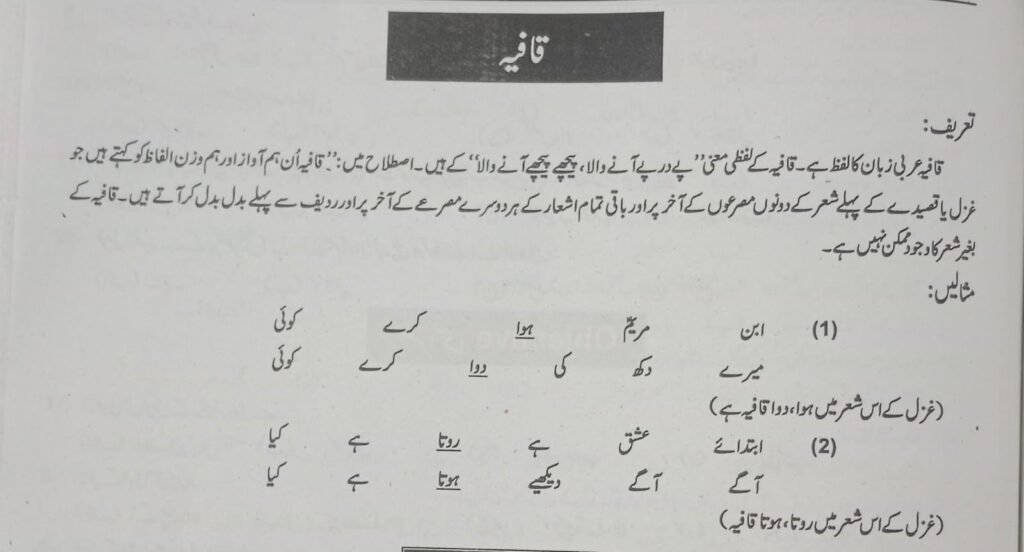 قافیہ
تعریف:
قافیہ عربی زبان کا لفظ ہے۔ قافیہ کے لفظی معنی ”پے در پے آنے والا، پیچھے پیچھے آنے والا“ کے ہیں۔ اصطلاح میں: ”قافیہ اُن ہم آواز اور ہم وزن الفاظ کو کہتے ہیں جو
غزل یا قصیدے کے پہلے شعر کے دونوں مصرعوں کے آخر پر اور باقی تمام اشعار کے ہر دوسرے مصرعے کے آخر پر اور ردیف سے پہلے بدل بدل کر آتے ہیں۔ قافیہ کے
بغیر شعر کا وجود ممکن نہیں ہے۔
مثالیں:
(1) ابن مریمؑ ہوا کرے کوئی
میرے دکھ کی دوا کرے کوئی
(غزل کے اس شعر میں ہوا، دوا قافیہ ہے)
(2) ابتدائے عشق ہے روتا ہے کیا
آگے آگے دیکھیے ہوتا ہے کیا
(غزل کے اس شعر میں روتا، ہوتا قافیہ)